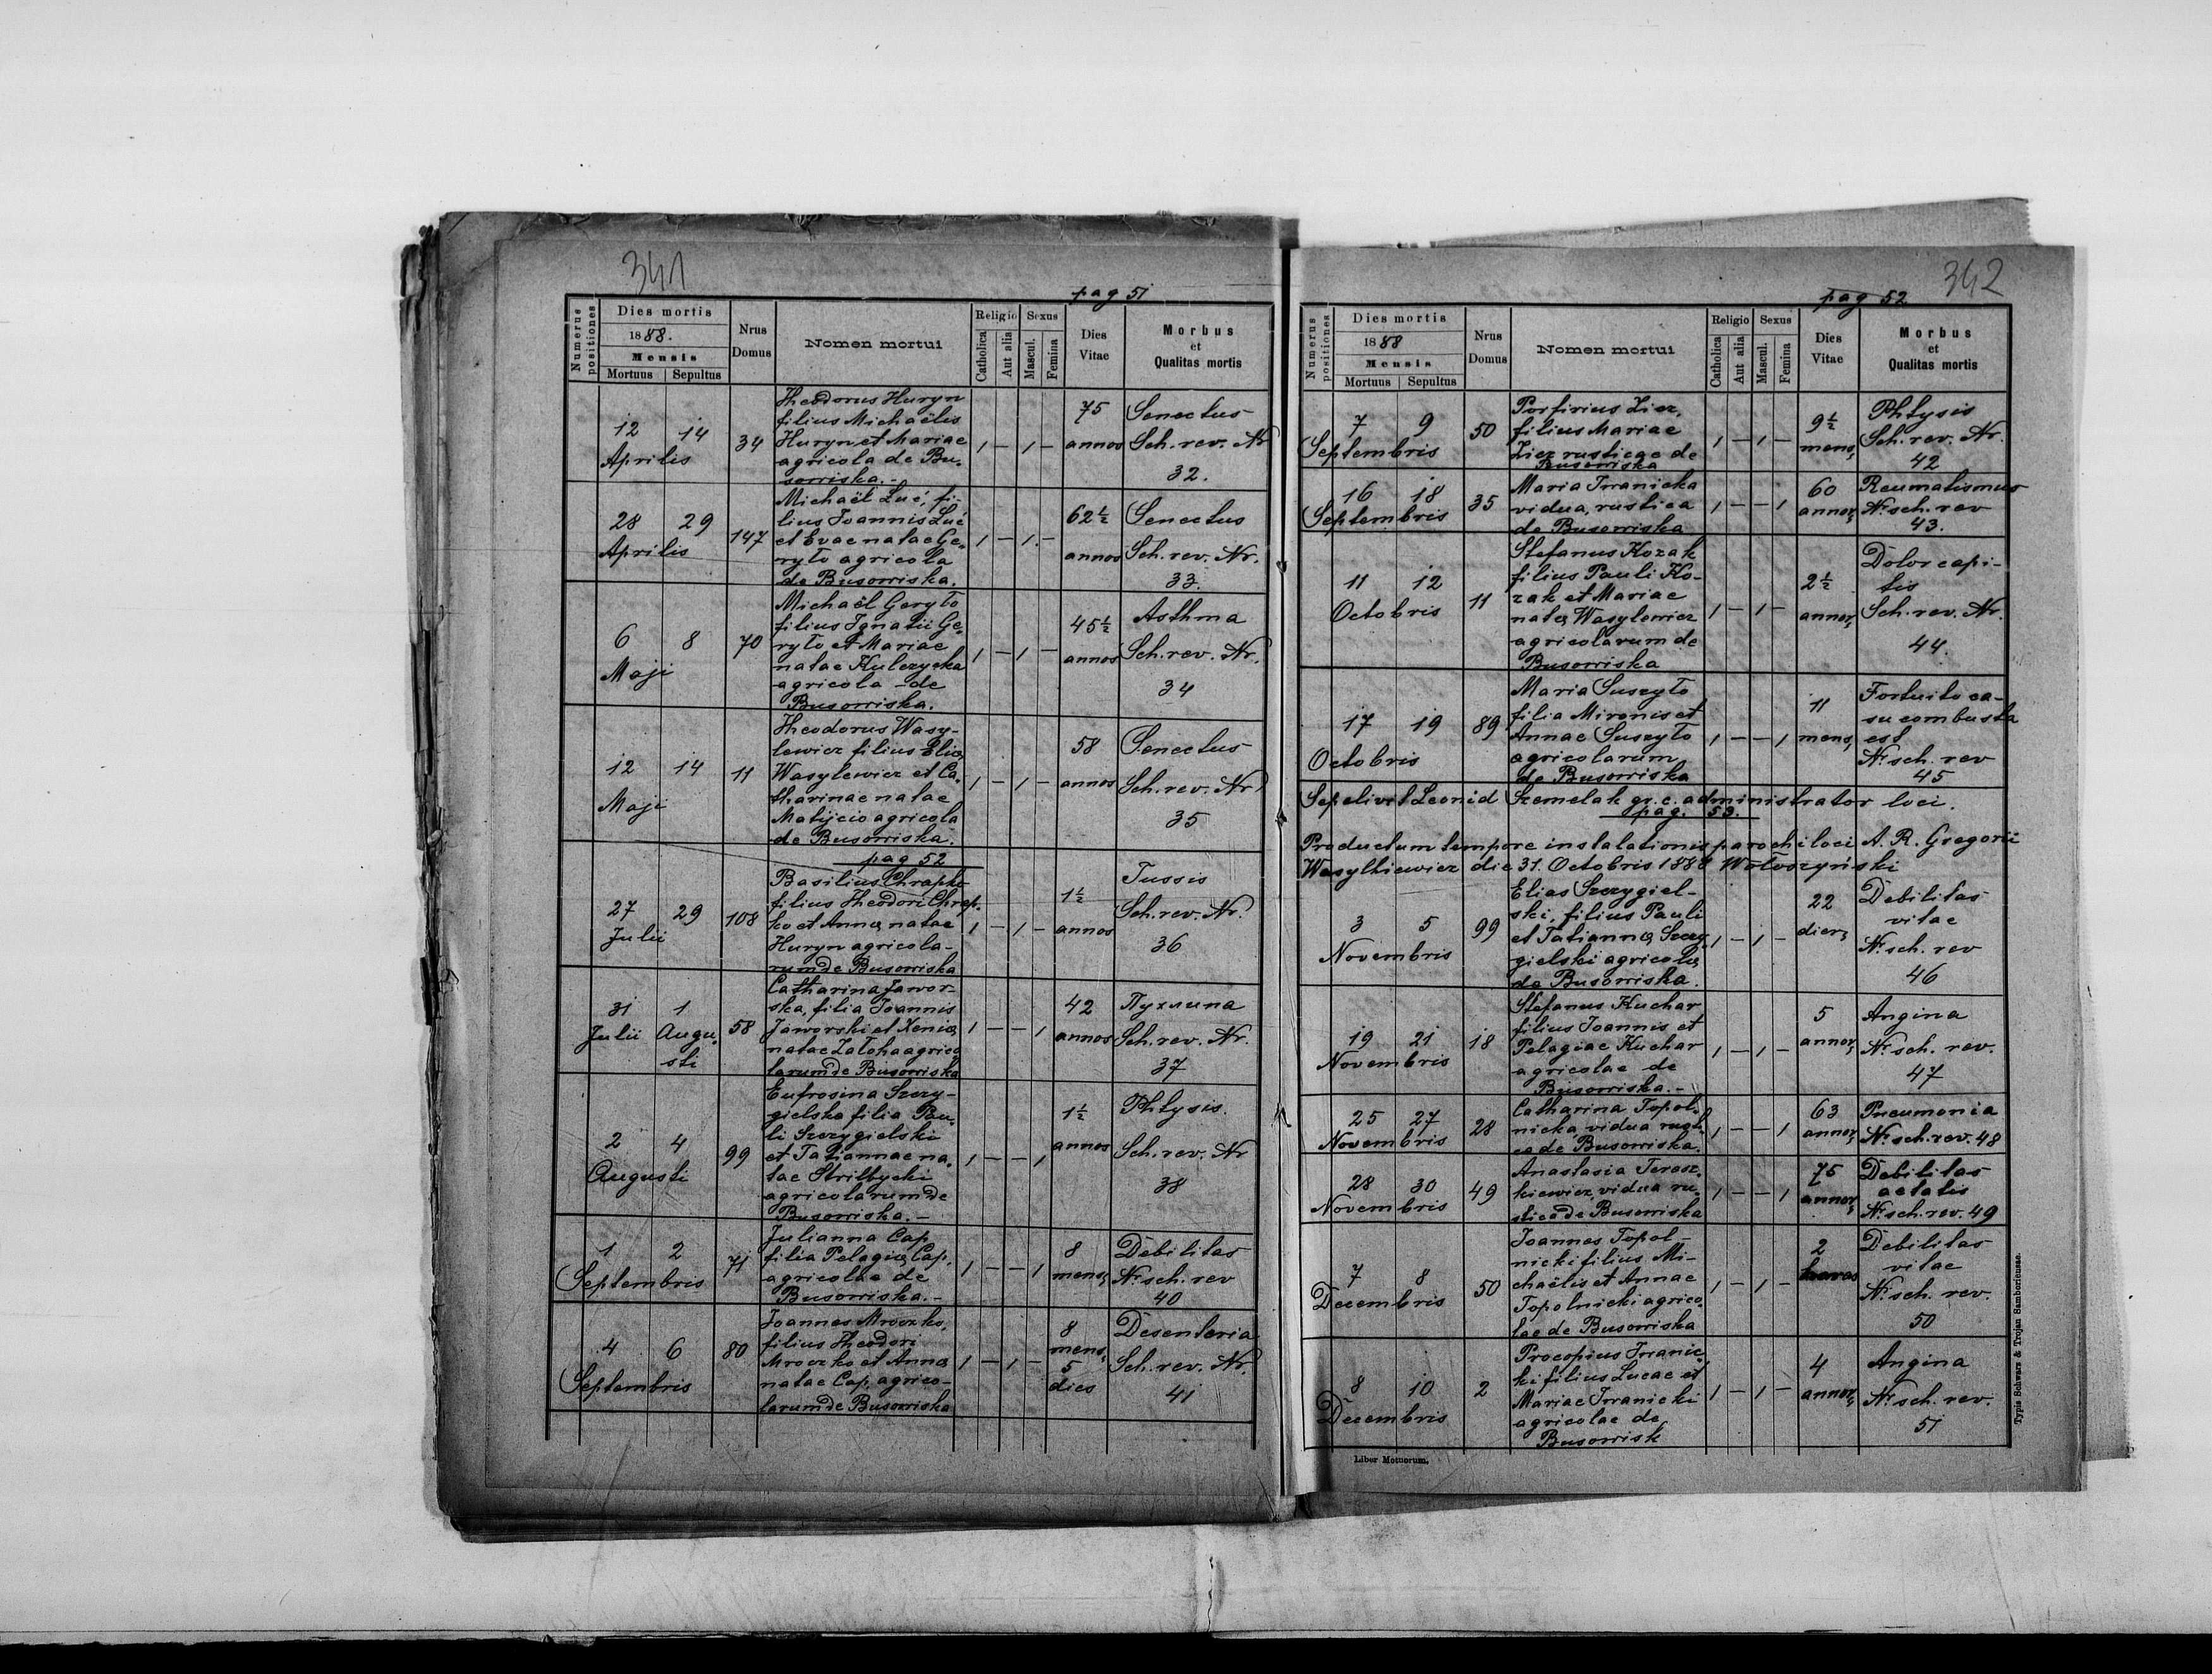 341
pag 51
Numerus positiones
Dies mortis
1888.
Mensis
Mortuus Sepultus
Nrus Domus
Nomen mortui
Religio
Catholica
Aut alia
Sexus
Mascul.
Femina
Dies Vitae
Morbus
et
Qualitas mortis
12 14
Aprilis
34
Theodorus Huryn
filius Michaëlis
Huryn et Mariae
agricola de Bu-
sowiska.-
1 - 1 -
75
annos
Senectus
Sch. rev. Nr
32.
28 29
Aprilis
147
Michaël Luć, fi-
lius Joannis Luć
et Evae natae Ge-
ryło agricola
de Busowiska.
1 - 1 -
62 1/2
annos
Senectus
Sch. rev. Nr.
33.
6 8
Maji
70
Michaël Geryło
filius Ignatii Ge-
ryło et Mariae
natae Kulczycka
agricola - de
Busowiska.
1 - 1 -
45 1/2
annos
Asthma
Sch. rev. Nr.
34
12 14
Maji
11
Theodorus Wasy-
lewicz filius Eliae
Wasylewicz et Ca-
tharinae natae
Matijcio agricola
de Busowiska.
1 - 1 -
58
annos
Senectus
Sch. rev. Nr
35
pag 52
27 29
Julii
108
Basilius Chrapko
filius Theodori Chrap-
ko et Annae natae
Huryn agricola-
rum de Busowiska
1 - 1 -
1 1/2
annos
Tussis
Sch. rev. Nr.
36
31 1
Julii Augu-
sti
58
Catharina Jawor-
ska, filia Joannis
Jaworski et Xeniae
natae Zatoha agrico
larum de Busowiska
1 - - 1
42
annos
Пухлина
Sch. rev. Nr.
37
2 4
Augusti
99
Eufrosina Szczy-
gielska filia Pau-
li Szczygielski
et Tatiannae na-
tae Strilbycki
agricolarum de
Busowiska.-
1 - - 1
1 1/2
annos
Phtysis.
Sch. rev. Nr
38
1 2
Septembris
71
Julianna Cap
filia Pelagiae Cap.
agricolae de
Busowiska.-
1 - - 1
8
mens,
Debilitas
Nr. sch. rev
40
4 6
Septembris
80
Joannes Mroczko,
filius Theodori
Mroczko et Annae
natae Cap, agrico-
larum de Busowiska
1 - 1 -
8
mens,
5
dies
Desenteria
Sch. rev. Nr.
41
342
pag 52
Numerus positiones
Dies mortis
1888
Mensis
Mortuus Sepultus
Nrus Domus
Nomen mortui
Religio
Catholica
Aut alia
Sexus
Mascul.
Femina
Dies Vitae
Morbus
et
Qualitas mortis
7 9
Septembris
50
Porfirius Licz,
filius Mariae
Licz rusticae de
Busowiska
1 - 1 -
9 1/2
mens,
Phtysis
Sch. rev. Nr.
42
16 18
Septembris
35
Maria Iwanicka
vidua, rustica
de Busowiska
1 - - 1
60
annor,
Reumatismus
Nr. sch. rev
43.
11 12
Octobris
11
Stefanus Kozak
filius Pauli Ko-
zak et Mariae
natae Wasylewicz
agricolarum de
Busowiska
1 - 1 -
2 1/2
annor,
Dolor capi-
tis
Sch. rev. Nr.
44.
17 19
Octobris
89
Maria Suszyło
filia Mironis et
Annae Suszyło
agricolarum
de Busowiska
1 - - 1
11
mens,
Fortuito ca-
su combusta
est
Nr. sch. rev
45
Sepelivit Leonid Szemelak gr. c. administrator loci.
pag. 53.
Productum tempore instalationis parochi loci A. R. Gregorii
Wasylkiewicz die 31. Octobris 1888 Wołoszyński
3 5
Novembris
99
Elias Szczygiel-
ski, filius Pauli
et Tatiannae Szczy-
gielski agricolae
de Busowiska.
1 - 1 -
22
dier,
Debilitas
vitae
Nr. sch. rev
46
19 21
Novembris
18
Stefanus Kuchar
filius Joannis et
Pelagiae Kuchar
agricolae de
Busowiska.-
1 - 1 -
5
annor,
Angina
Nr. sch. rev.
47
25 27
Novembris
28
Catharina Topol-
nicka vidua rusti
ca de Busowiska.
1 - - 1
63
annor,
Pneumonia
Nr. sch. rev. 48
28 30
Novembris
49
Anastasia Terasz-
kiewicz, vidua ru-
stica de Busowiska
1 - - 1
75
annor,
Debilitas
aetatis
Nr. sch. rev. 49
7 8
Decembris
50
Joannes Topol-
nicki filius Mi-
chaëlis et Annae
Topolnicki agrico-
lae de Busowiska
1 - 1 -
2
horas
Debilitas
vitae
Nr. sch. rev.
50
8 10
Decembris
2
Procopius Iwanic-
ki filius Lucae et
Mariae Iwanicki
agricolae de
Busowisk
1 - 1 -
4
annor,
Angina
Nr. sch. rev.
51
Liber Motuorum.
Typis Schwarz & Trojan Samboriensae.